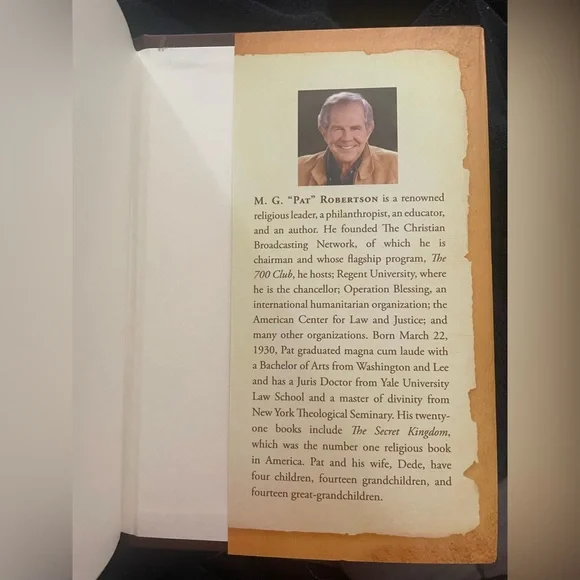 M. G. “Pat” Robertson is a renowned
religious leader, a philanthropist, an educator,
and an author. He founded The Christian
Broadcasting Network, of which he is
chairman and whose flagship program, The
700 Club, he hosts; Regent University, where
he is the chancellor; Operation Blessing, an
international humanitarian organization; the
American Center for Law and Justice; and
many other organizations. Born March 22,
1930, Pat graduated magna cum laude with
a Bachelor of Arts from Washington and Lee
and has a Juris Doctor from Yale University
Law School and a master of divinity from
New York Theological Seminary. His twenty-
one books include The Secret Kingdom,
which was the number one religious book
in America. Pat and his wife, Dede, have
four children, fourteen grandchildren, and
fourteen great-grandchildren.